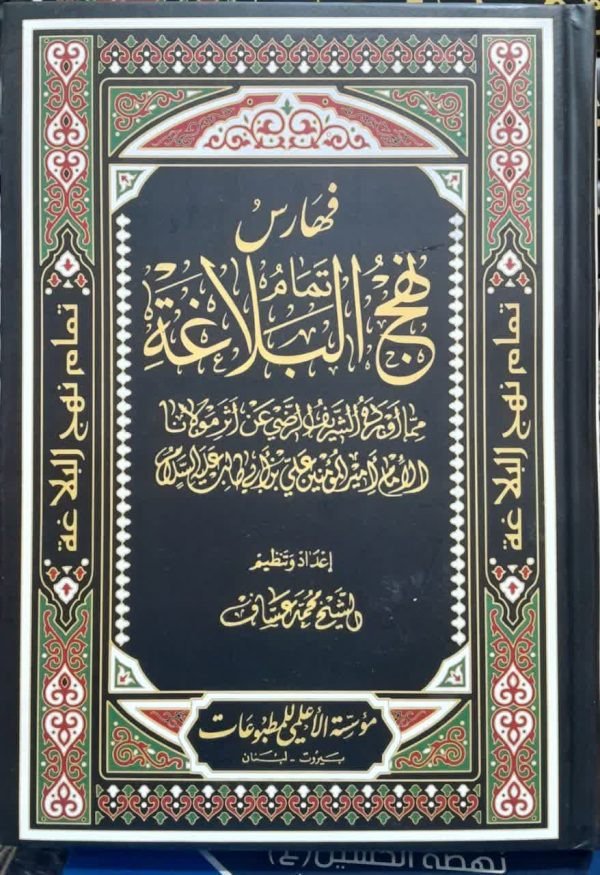 فهارس
تمام
نهج البلاغة
مما أورده الشريف الرضي عن أثر مولانا
الإمام أمير المؤمنين علي بن أبي طالب عليه السلام
إعداد وتنظيم
الشيخ محمد عساف
مؤسسة الأعلمي للمطبوعات
بيروت - لبنان
تمام نهج البلاغة
تمام نهج البلاغة
نهضة الحسين (ع)